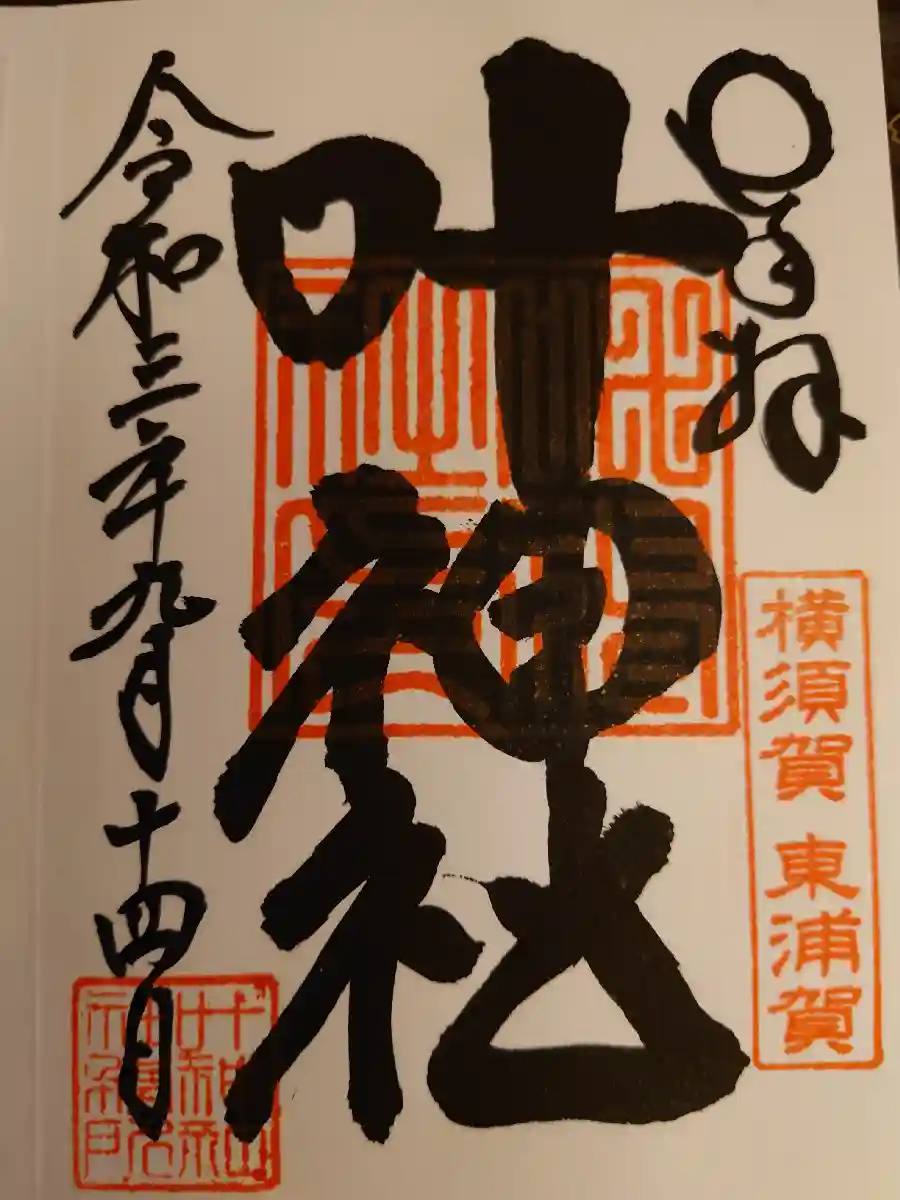 奉拝
横須賀 東浦賀
叶神社
令和三年九月十四日